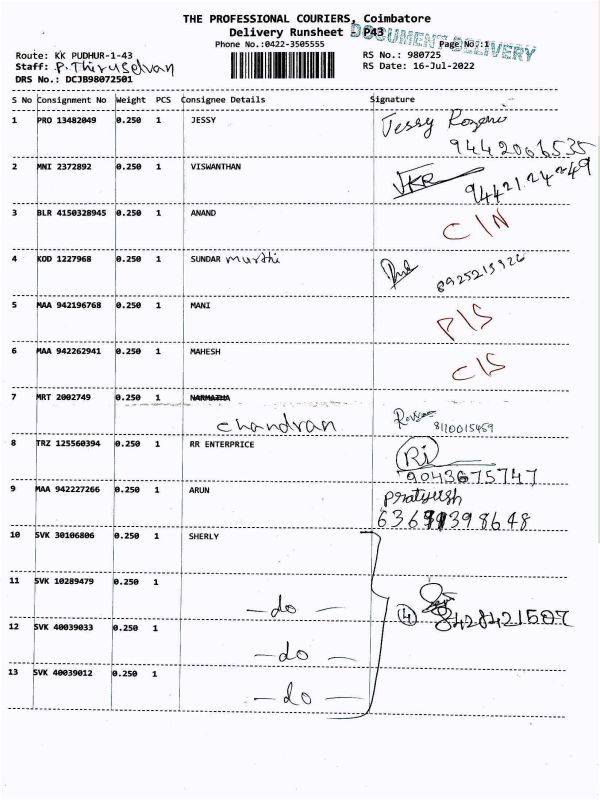 THE PROFESSIONAL COURIERS, Coimbatore
Delivery Runsheet - P43
DOCUMENT DELIVERY
Phone No.:0422-3505555 Page No:1
Route: KK PUDHUR-1-43 RS No.: 980725
Staff: P.Thiruselvan RS Date: 16-Jul-2022
DRS No.: DCJB98072501
S No Consignment No Weight PCS Consignee Details Signature
1 PRO 13482049 0.250 1 JESSY Jessy Rozario
9442066535
2 MNI 2372892 0.250 1 VISWANTHAN VKR 9442124249
3 BLR 4150328945 0.250 1 ANAND C/N
4 KOD 1227968 0.250 1 SUNDAR murthi 8925215326
5 MAA 942196768 0.250 1 MANI P/S
6 MAA 942262941 0.250 1 MAHESH C/S
7 MRT 2002749 0.250 1 NARMATHA
chandran 8110015459
8 TRZ 125560394 0.250 1 RR ENTERPRICE Ri
9043675747
9 MAA 942227266 0.250 1 ARUN Pratyush
10 SVK 30106806 0.250 1 SHERLY
11 SVK 10289479 0.250 1
- do -
4 8428421507
12 SVK 40039033 0.250 1
- do -
13 SVK 40039012 0.250 1
- do -